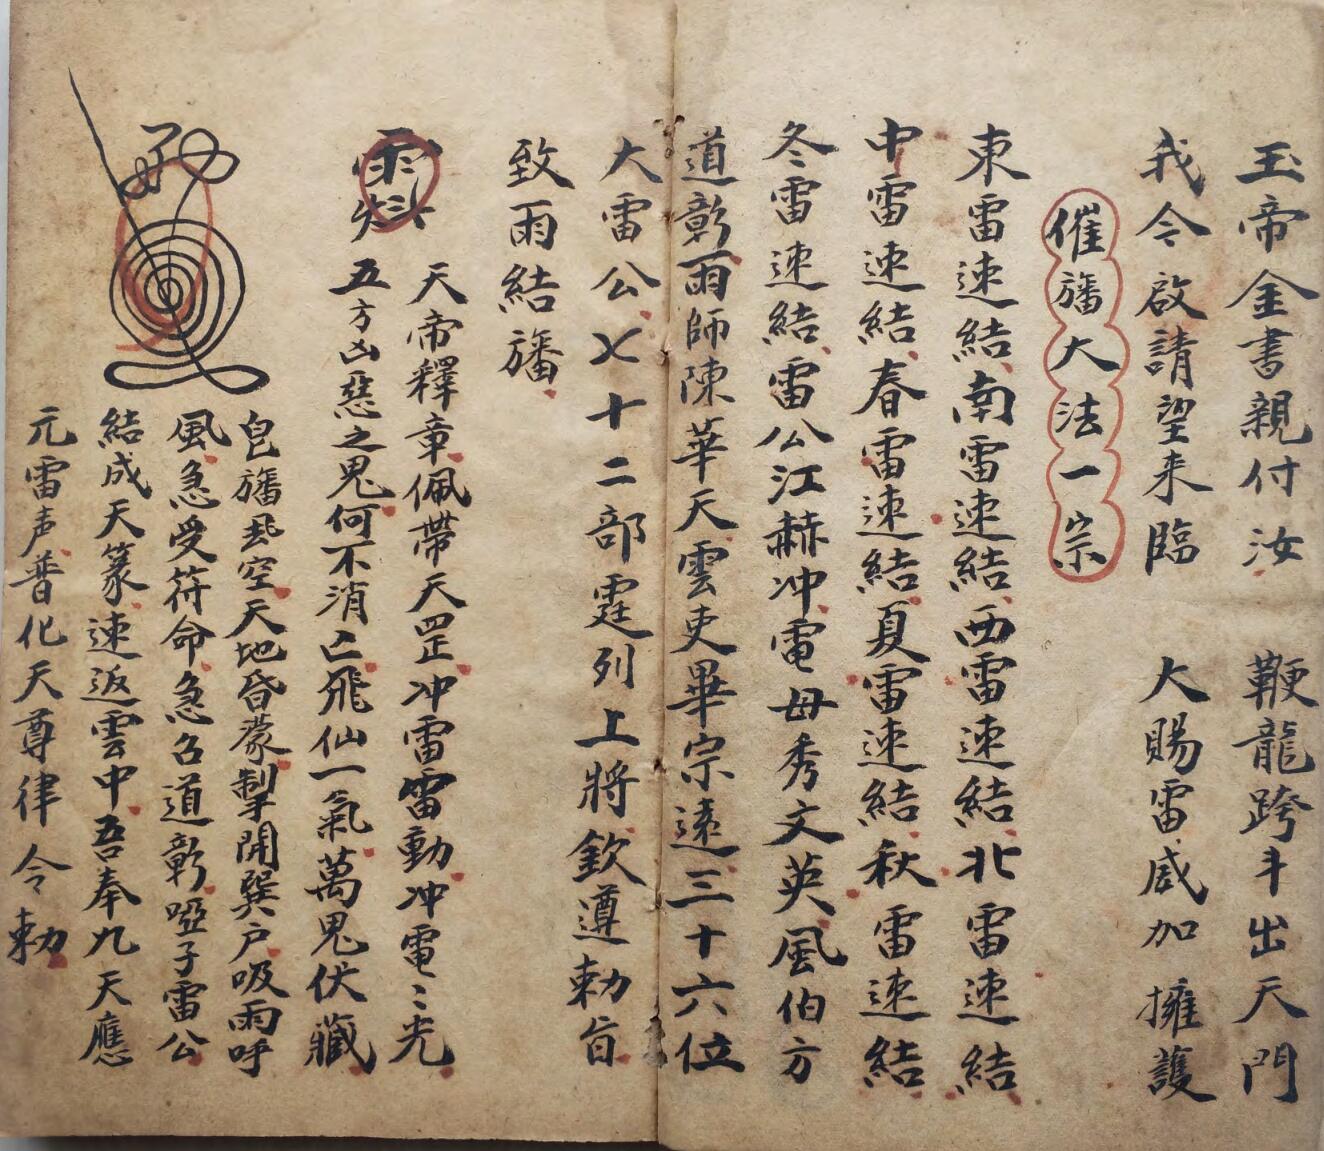 玉帝金書親付汝 鞭龍跨斗出天門
我今啟請望来臨 大賜雷威加擁護
催旛大法一宗
東雷速結南雷速結西雷速結北雷速結
中雷速結春雷速結夏雷速結秋雷速結
冬雷速結雷公江赫冲電母秀文英風伯方
道彰雨師陳華天雲吏畢宗遠三十六位
大雷公七十二部霆列上將欽遵勅旨
致雨結旛
天帝釋章佩帶天罡冲雷雷動冲電〻光
五方凶惡之鬼何不消亡飛仙一氣萬鬼伏藏
皂旛悬空天地昏蒙掣開巽户吸雨呼
風急受符命急召道彰啞子雷公
結成天篆速返雲中吾奉九天應
元雷声普化天尊律令勅